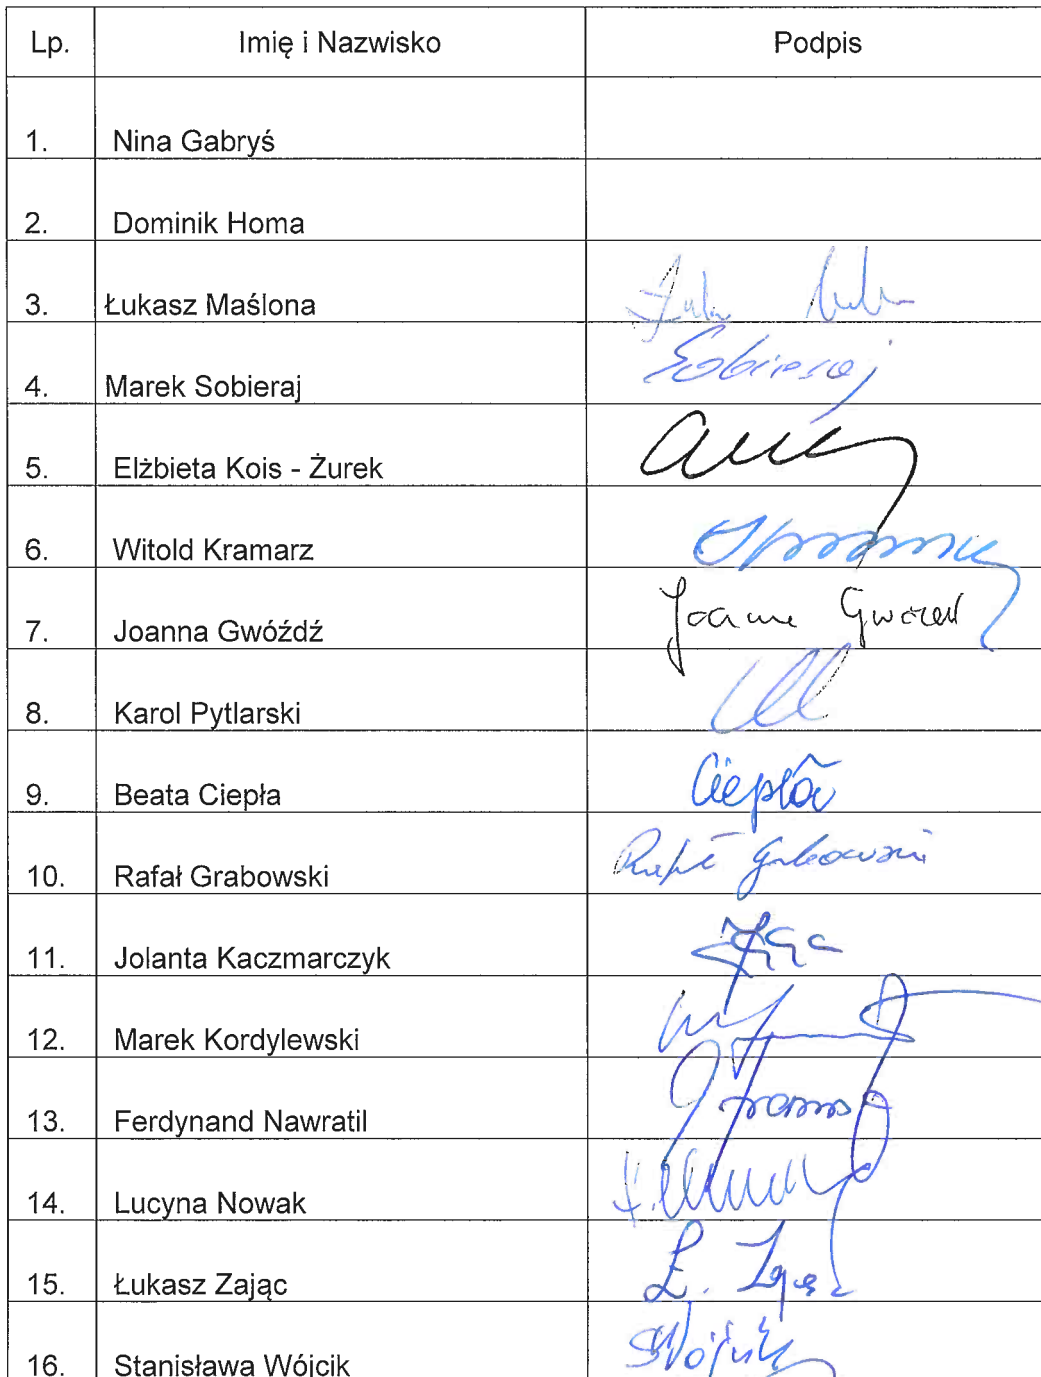 Lp. Imię i Nazwisko Podpis
1. Nina Gabryś
2. Dominik Homa
3. Łukasz Maślona
4. Marek Sobieraj Sobieraj
5. Elżbieta Kois - Żurek
6. Witold Kramarz
7. Joanna Gwóźdź Joanna
8. Karol Pytlarski
9. Beata Ciepła Ciepła
10. Rafał Grabowski Rafał Grabowski
11. Jolanta Kaczmarczyk
12. Marek Kordylewski
13. Ferdynand Nawratil
14. Lucyna Nowak
15. Łukasz Zając Ł. Zając
16. Stanisława Wójcik SWójcik